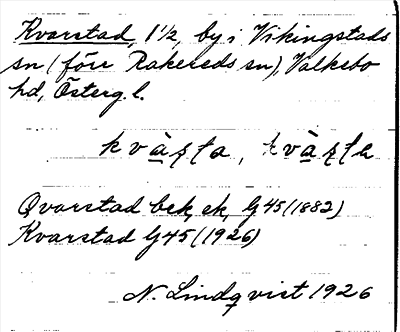 Kvarstad, 1 1/2, by i Vikingstads
sn (förr Rakereds sn), Valkebo
hd, Österg. l.
Qvarstad bek, ek, G45 (1882)
Kvarstad G45 (1926)
N. Lindqvist 1926